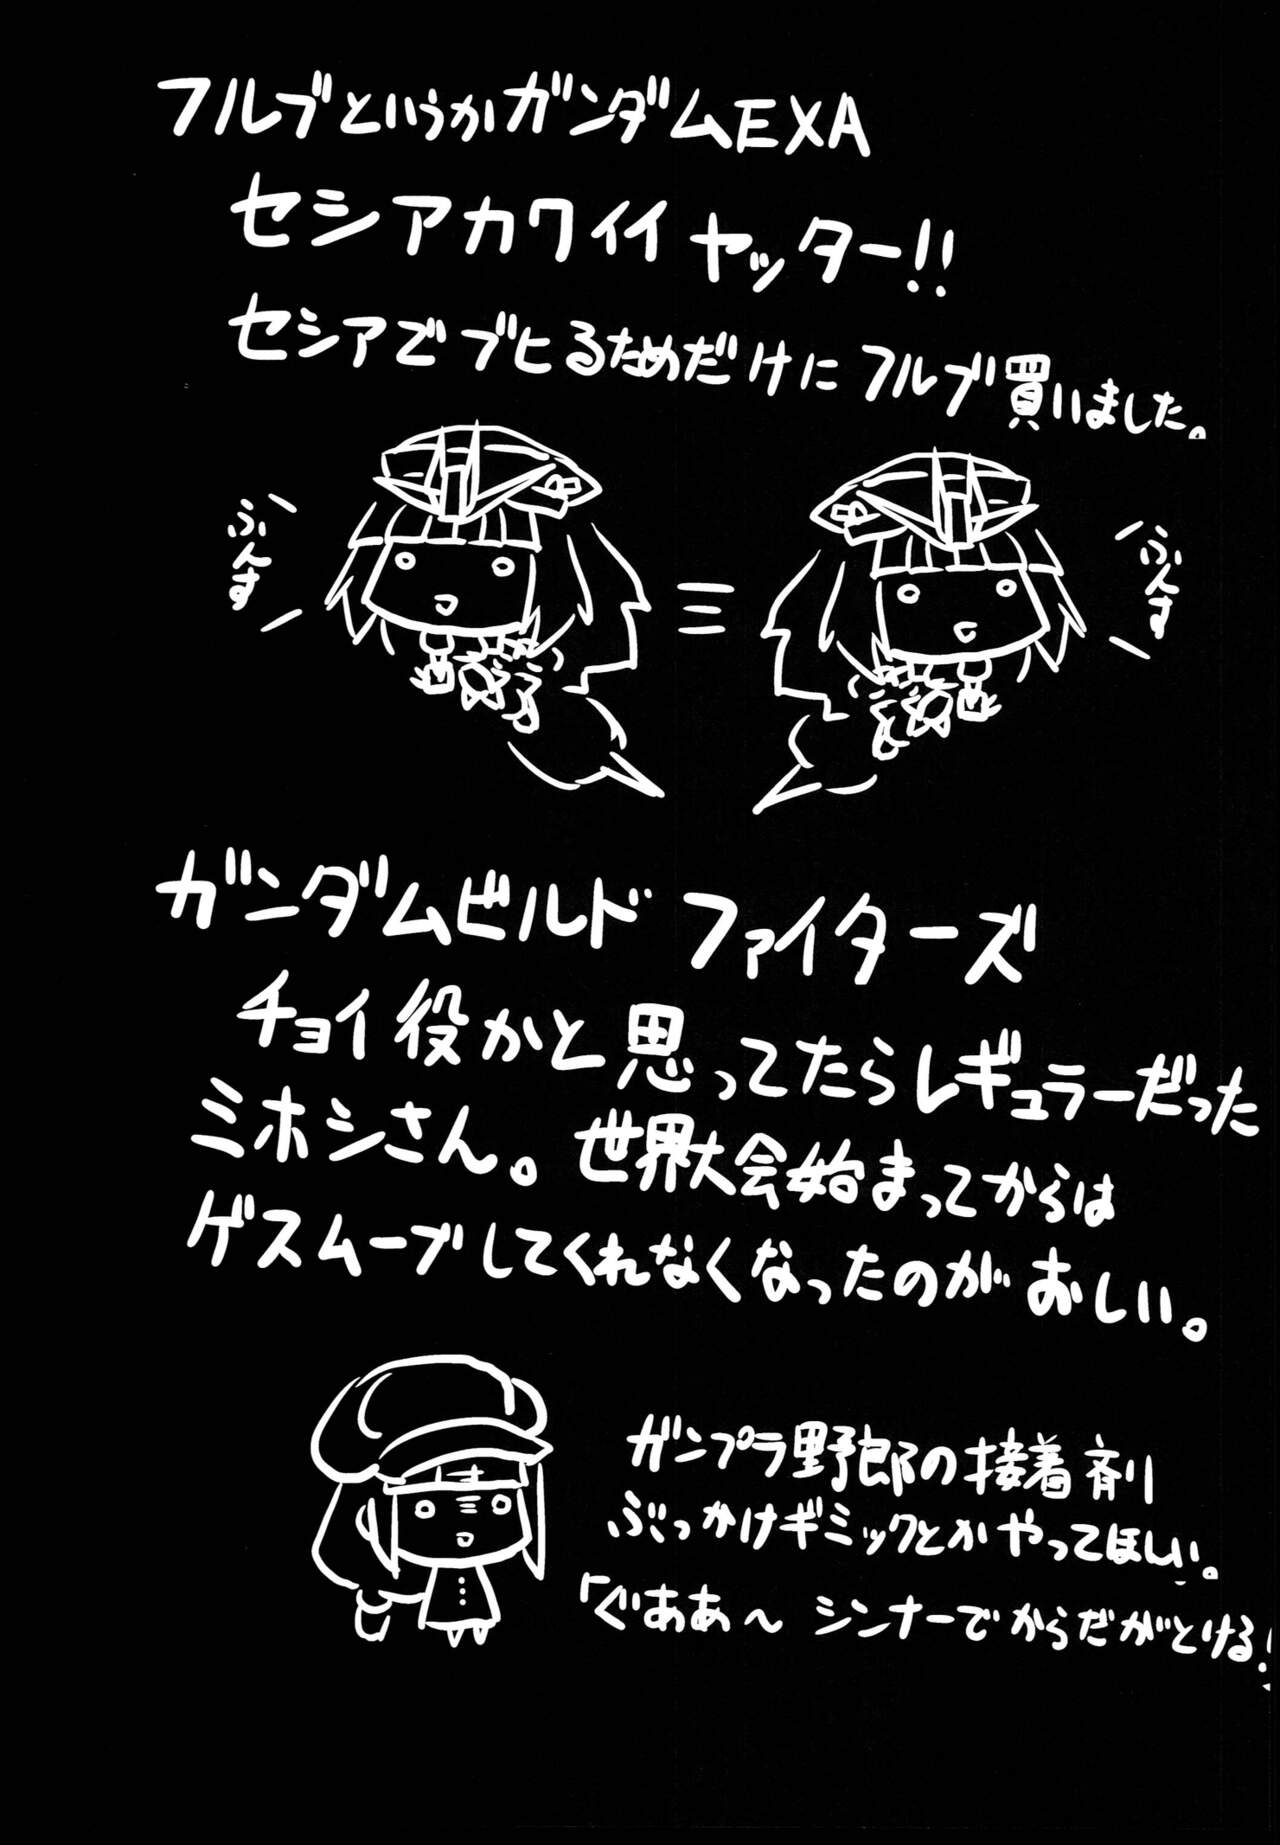 フルブというかガンダムEXA
セシアカワイイ ヤッター!!
セシアでブヒるためだけにフルブ買いました。
ふんす
ふんす
ガンダムビルド ファイターズ
チョイ役かと思ってたらレギュラーだった
ミホシさん。世界大会始まってからは
ゲスムーブしてくれなくなったのがおしい。
ガンプラ野郎の接着剤
ぶっかけギミックとかやってほしい。
「ぐああ～ シンナーでからだがとける!」